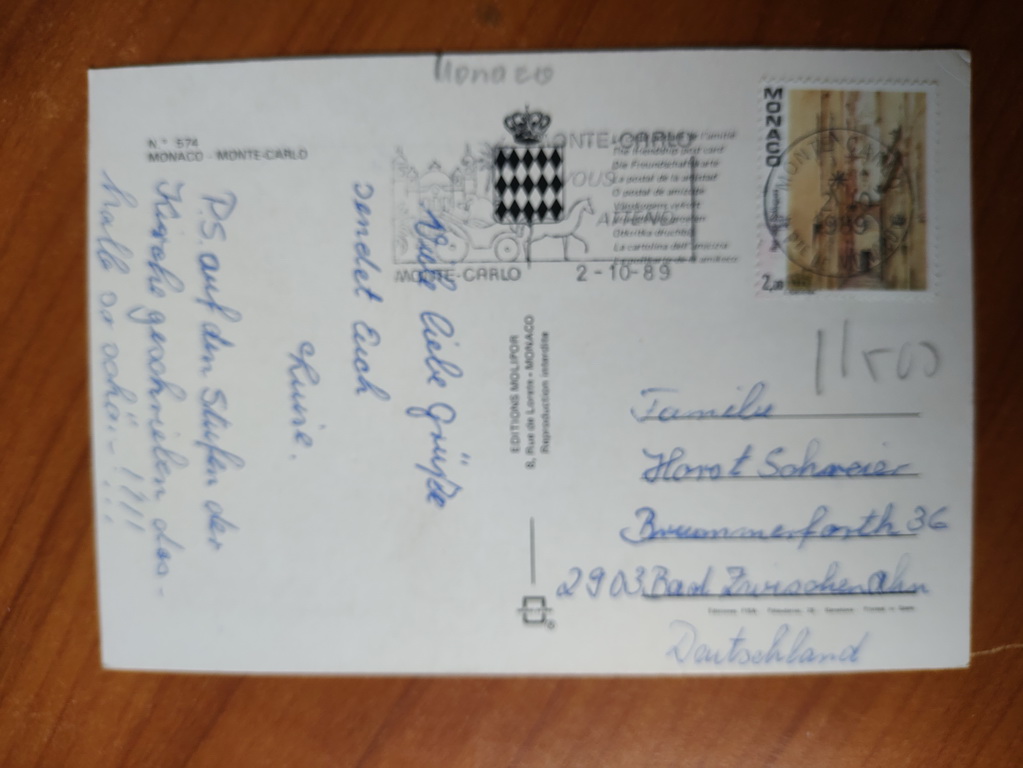 Monaco
N° 574
MONACO - MONTE-CARLO
Viele liebe Grüße
sendet Euch
Luise.
P.S. auf den Stufen der
Kirche geschrieben das-
halb so schö.- !?!!
MONTE-CARLO
VOUS
ATTEND
MONTE-CARLO
2-10-89
MONACO
2,00
EDITIONS MOLIPOR
8, Rue de Lorete - MONACO
Reproduction interdite
11500
Familie
Horst Schweier
Brummerforth 36
2903 Bad Zwischenahn
Deutschland